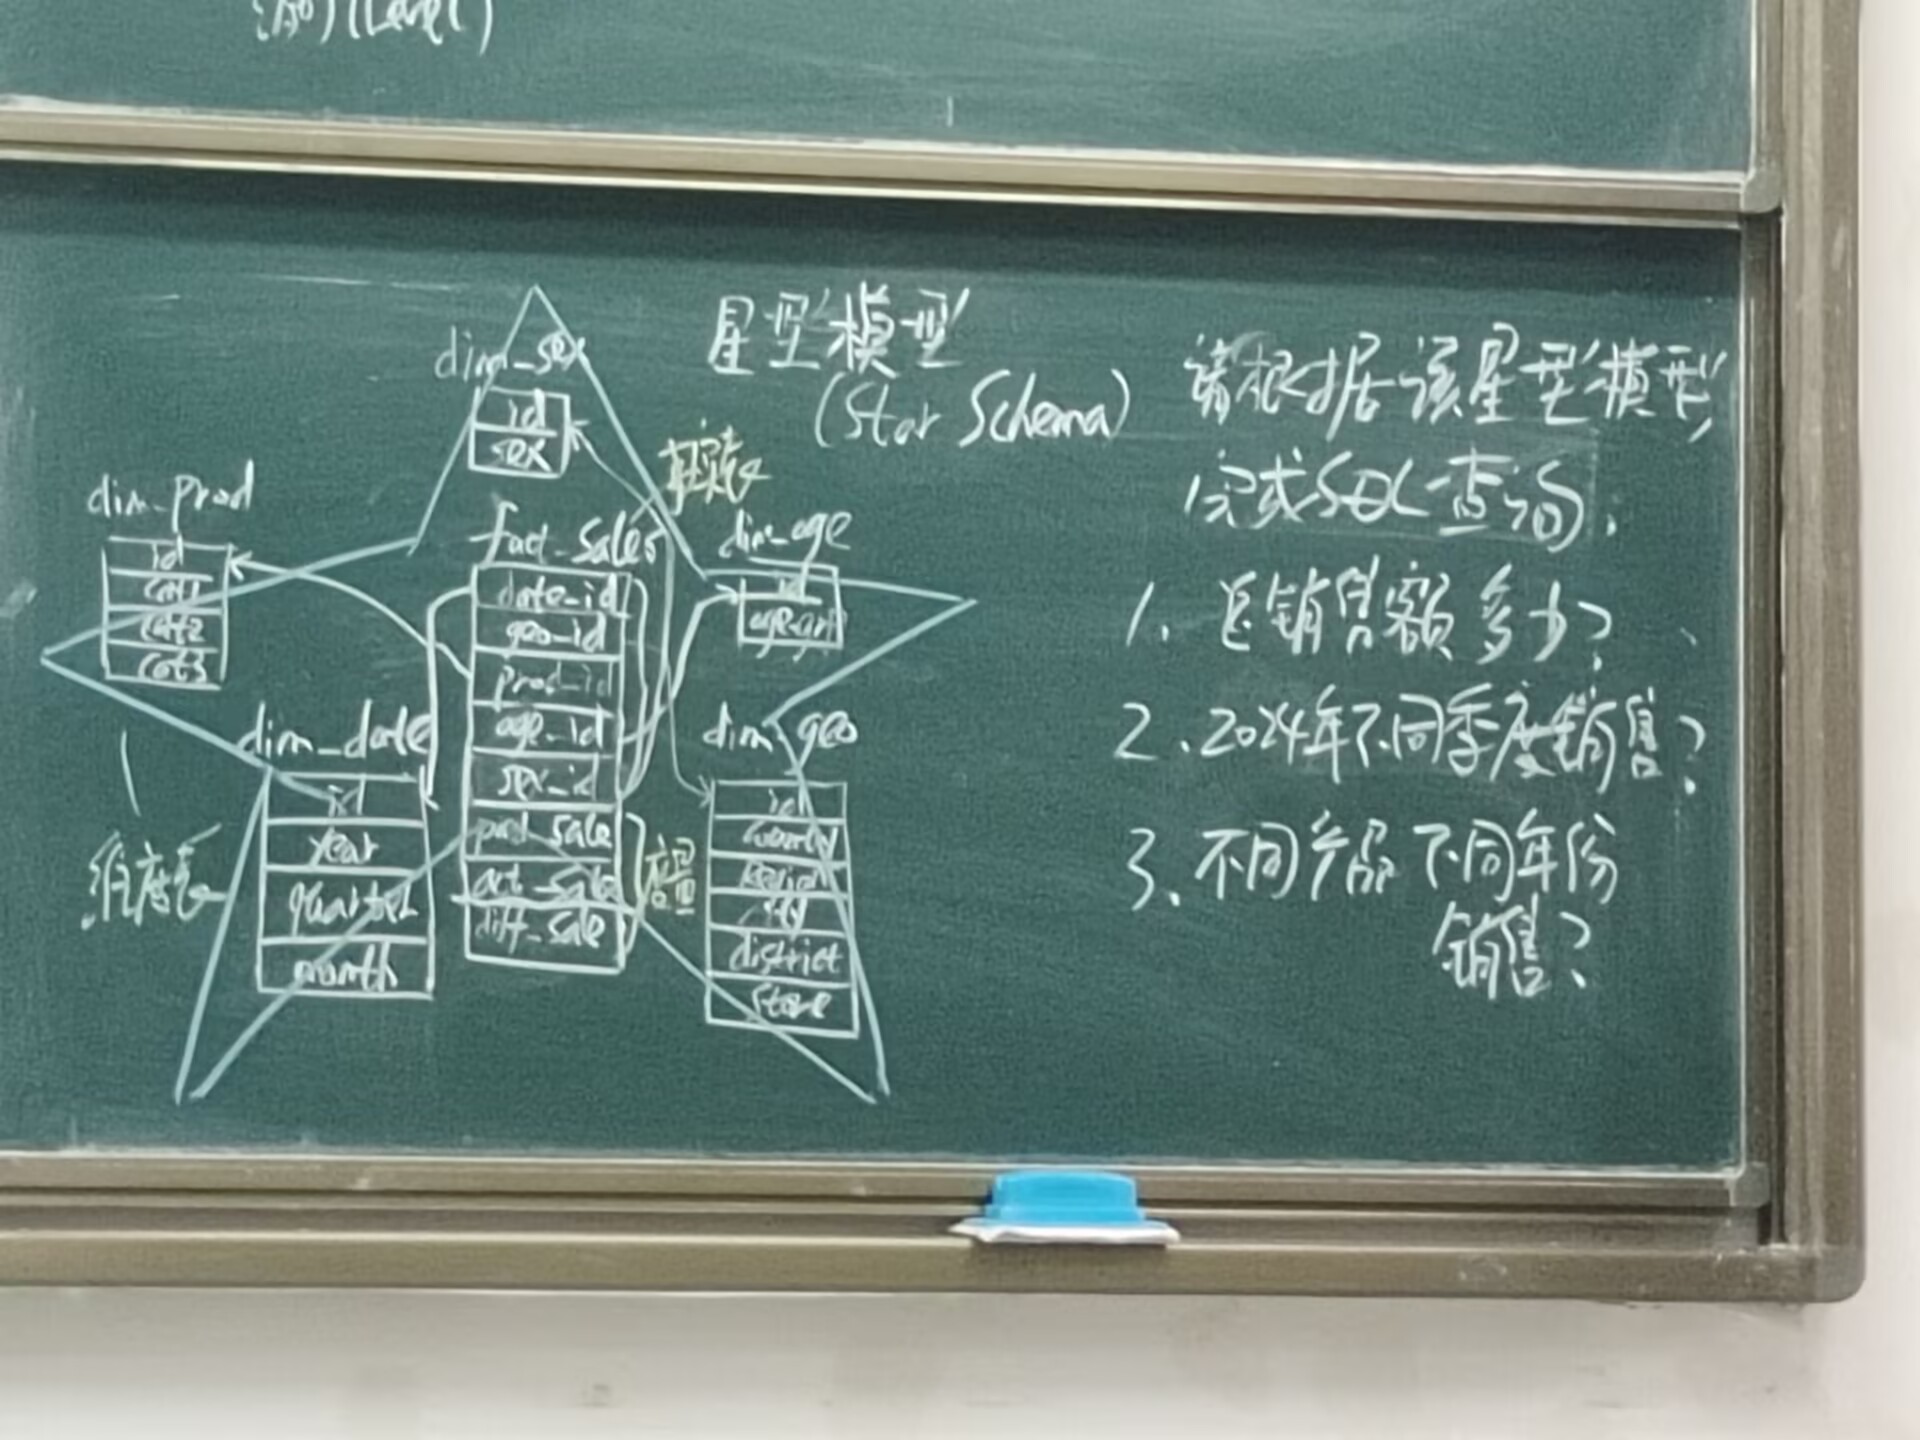 (Level)
星型模型
(Star Schema)
dim_sex
id
sex
事实表
dim_prod
id
cat1
cat2
cat3
fact_sales
date_id
geo_id
prod_id
age_id
sex_id
act_sale
diff_sale
度量
dim_age
id
dim_date
id
year
quarter
month
维度表
dim_geo
id
city
district
store
请根据该星型模型,
完成SQL查询.
1. 总销售额多少?
2. 2024年不同季度销售?
3. 不同产品不同年份
销售?